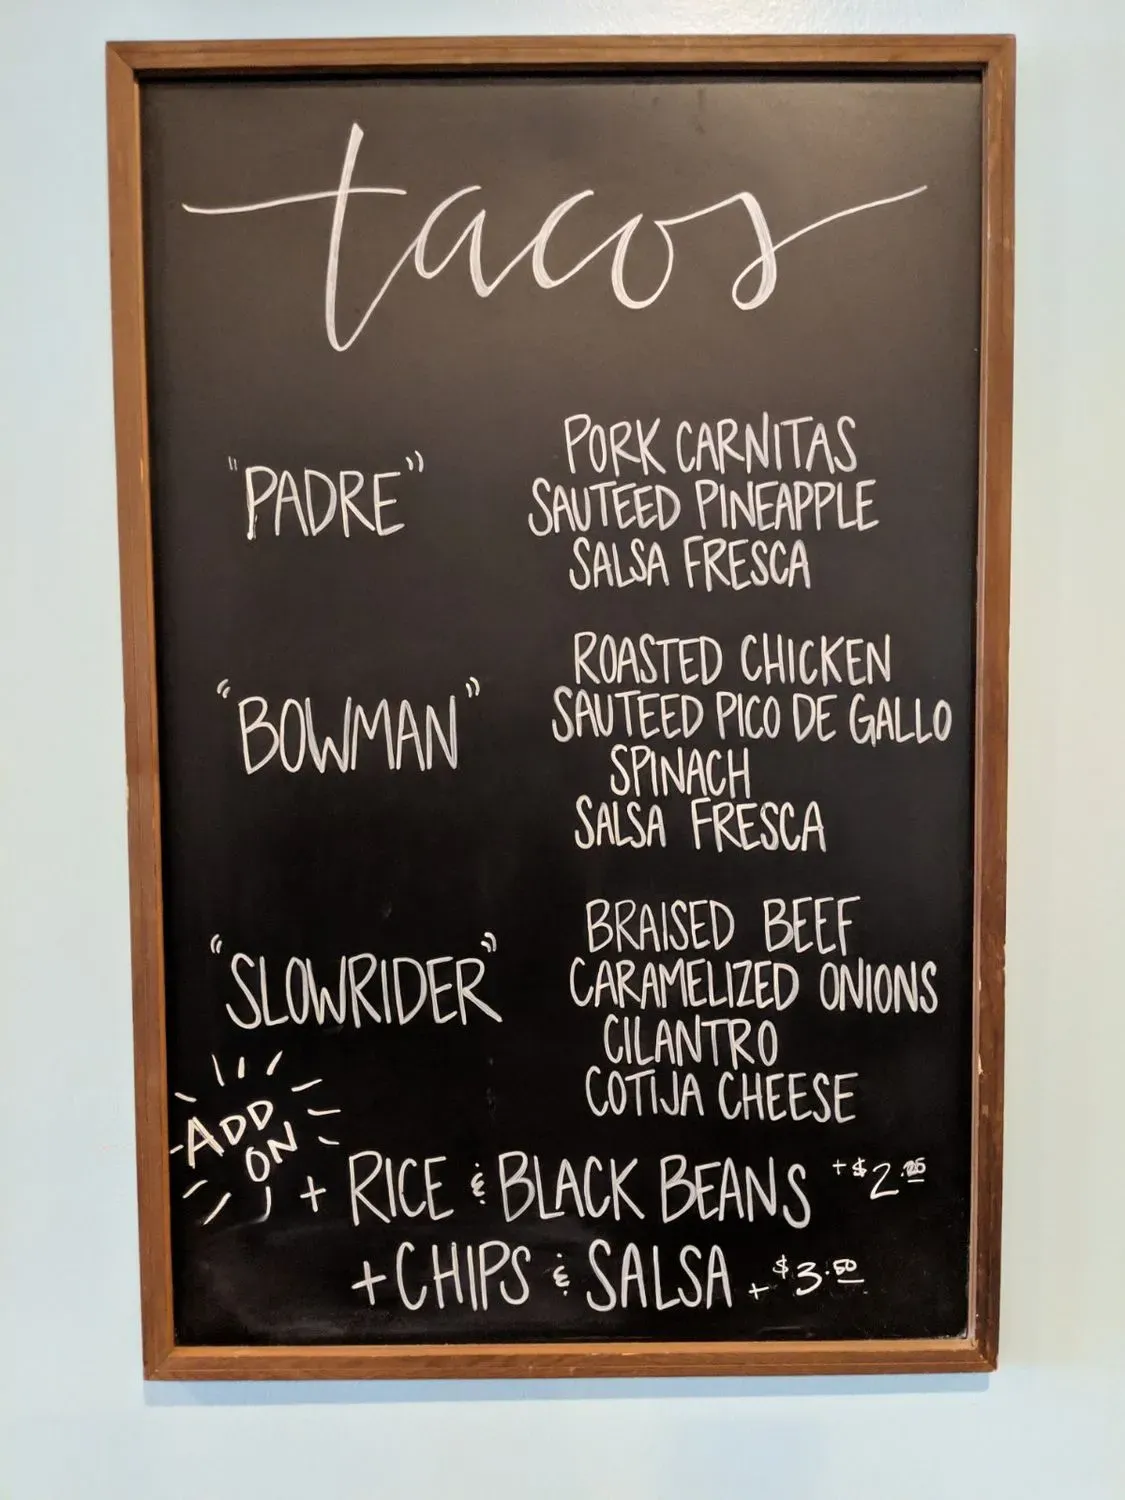 tacos
"PADRE"
PORK CARNITAS
SAUTEED PINEAPPLE
SALSA FRESCA
"BOWMAN"
ROASTED CHICKEN
SAUTEED PICO DE GALLO
SPINACH
SALSA FRESCA
"SLOWRIDER"
BRAISED BEEF
CARAMELIZED ONIONS
CILANTRO
COTIJA CHEESE
ADD
ON
+ RICE & BLACK BEANS +$2.25
+ CHIPS & SALSA +$3.50